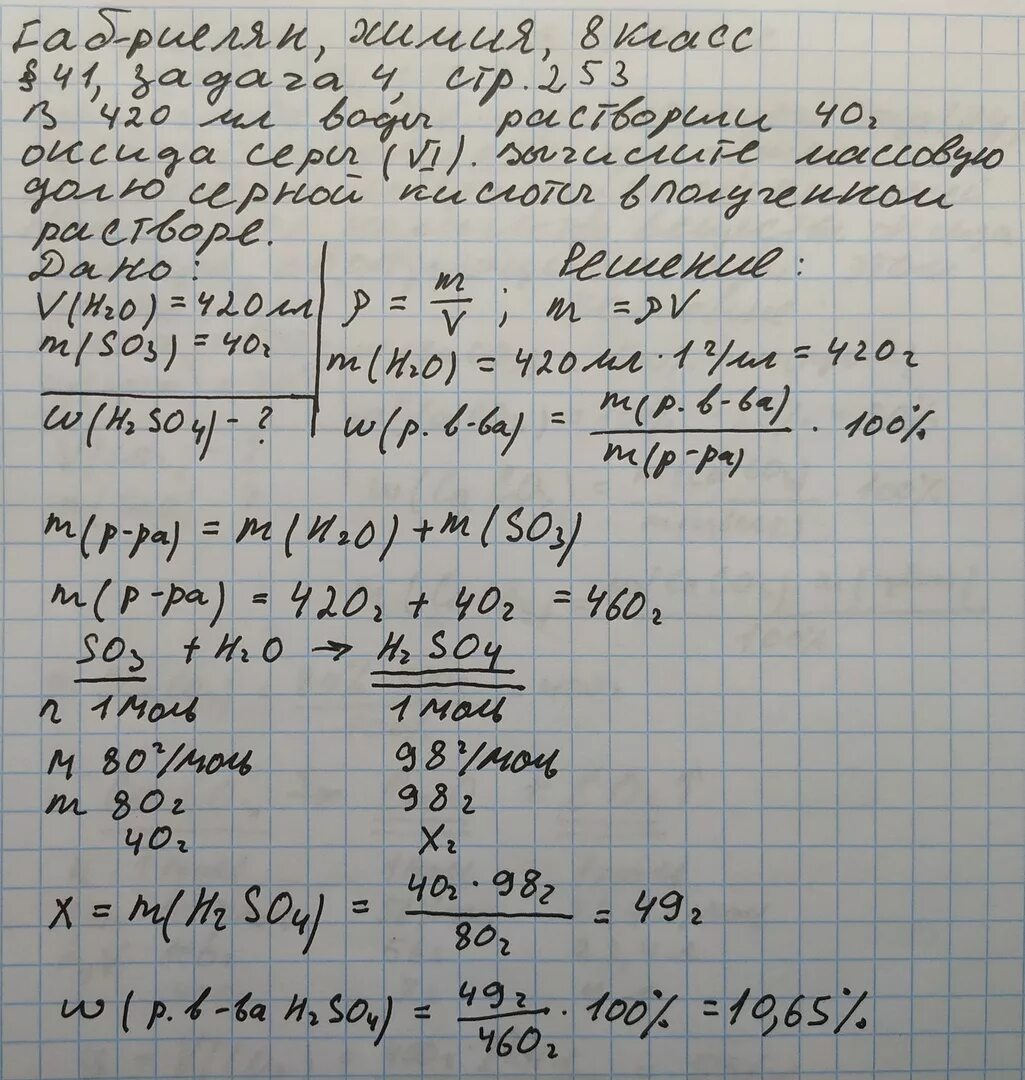 Габриелян, химия, 8 класс
§ 41, задача 4, стр. 253
В 420 мл воды растворили 40г
оксида серы (VI). Вычислите массовую
долю серной кислоты в полученном
растворе.
Дано: Решение:
V(H₂O) = 420 мл
m(SO₃) = 40г
w(H₂SO₄) - ?
ρ = m/V ; m = ρV
m(H₂O) = 420 мл · 1 г/мл = 420г
w(р. в-ва) = m(р. в-ва)/m(р-ра) · 100%
m(р-ра) = m(H₂O) + m(SO₃)
m(р-ра) = 420г + 40г = 460г
SO₃ + H₂O → H₂SO₄
n 1 моль 1 моль
M 80 г/моль 98 г/моль
m 80г 98г
40г Xг
X = m(H₂SO₄) = 40г · 98г/80г = 49г
w(р. в-ва H₂SO₄) = 49г/460г · 100% = 10,65%